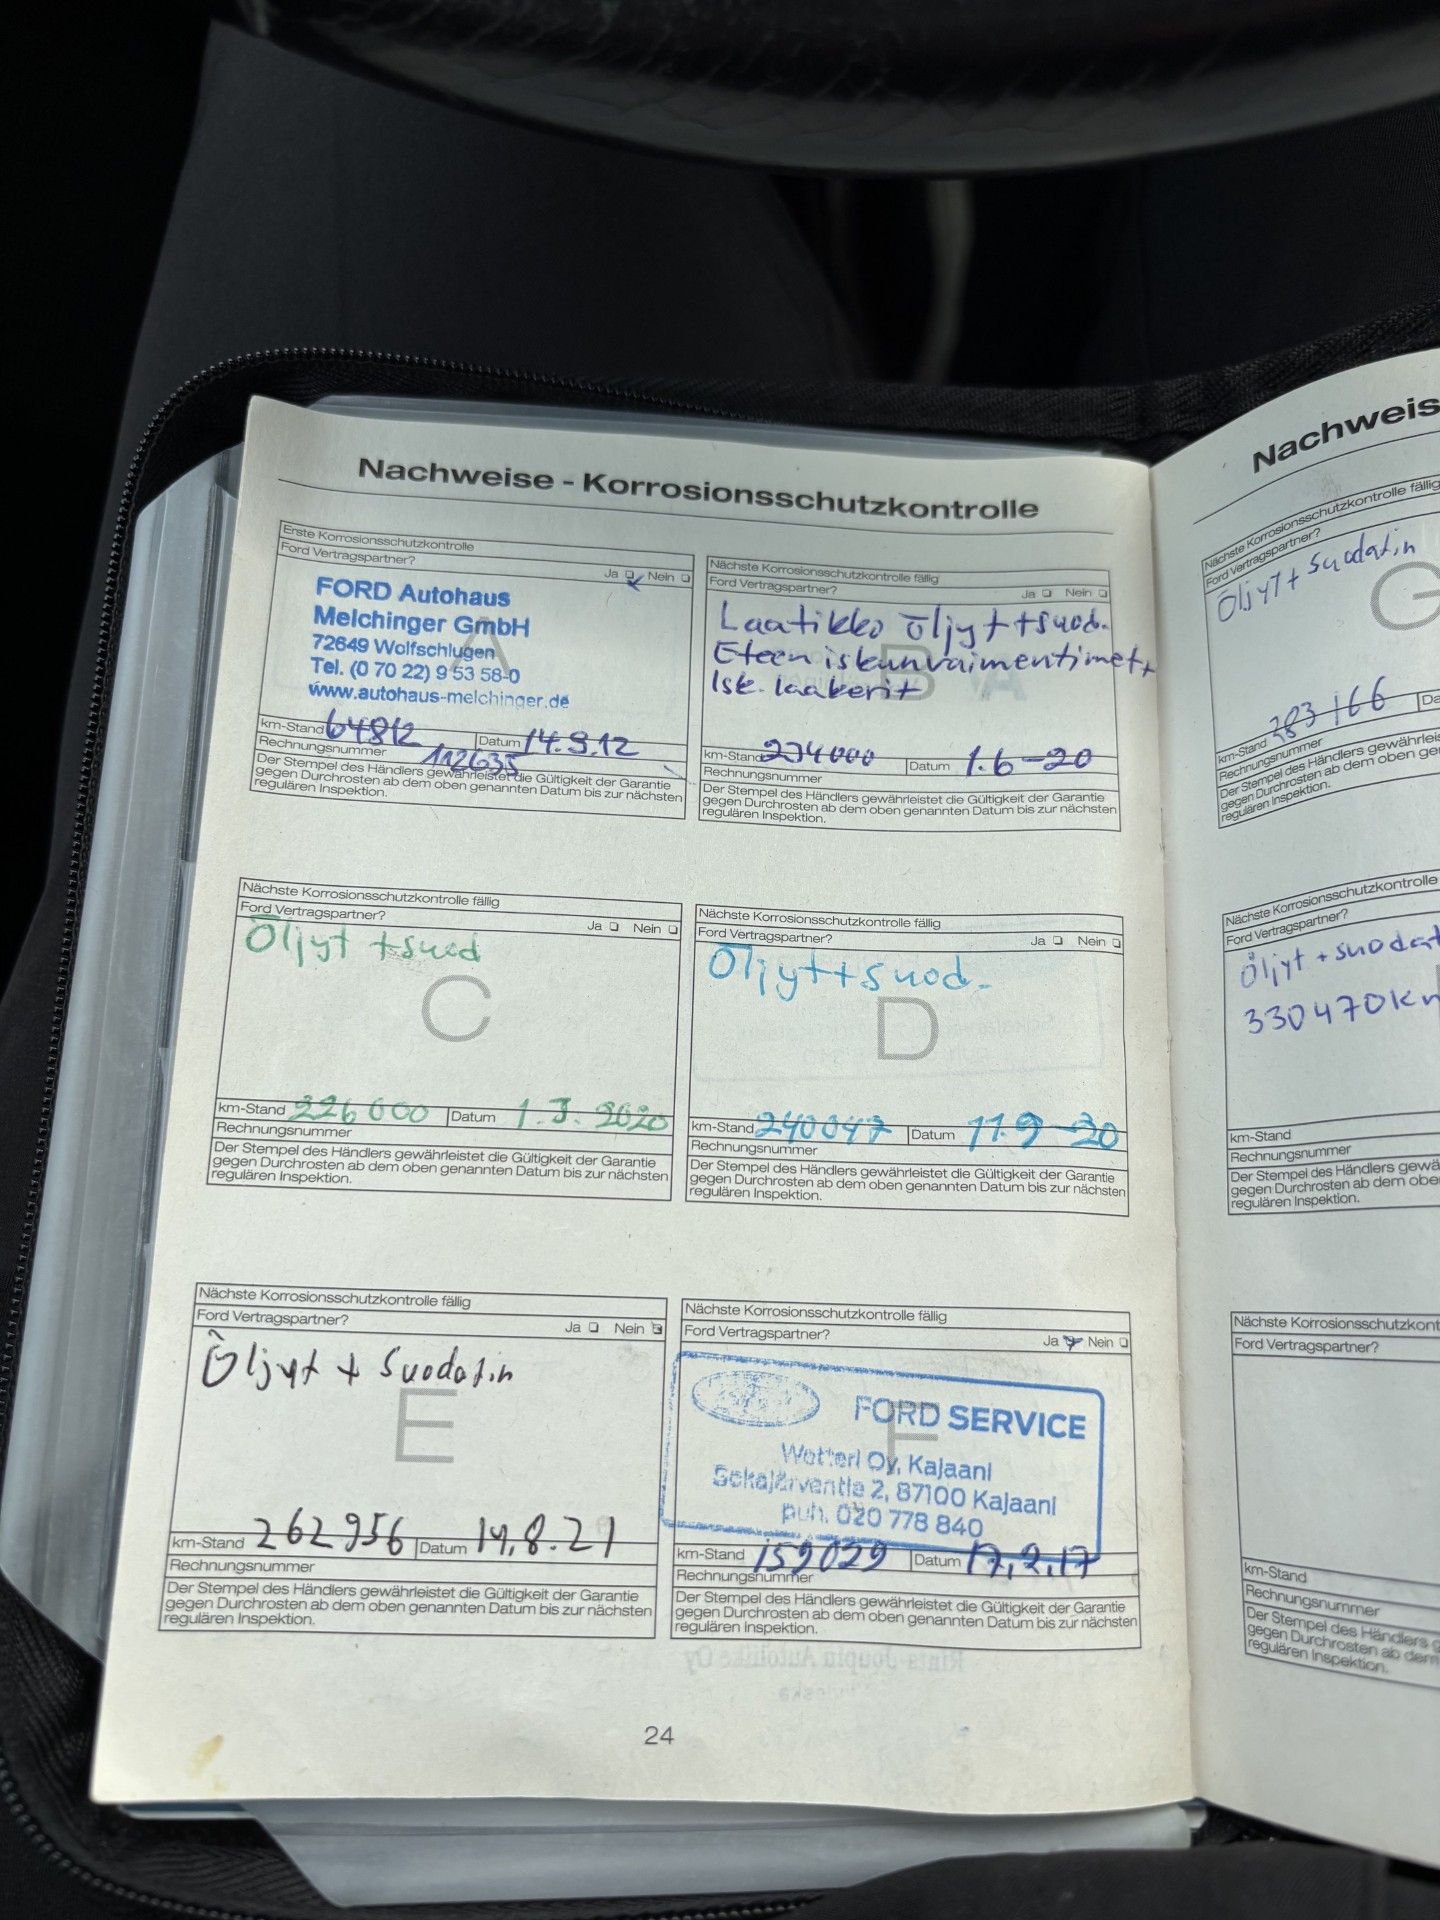 Nachweise - Korrosionsschutzkontrolle
Erste Korrosionsschutzkontrolle
Ford Vertragspartner?
Ja Nein
FORD Autohaus
Melchinger GmbH
72649 Wolfschlugen
Tel. (0 70 22) 9 53 58-0
www.autohaus-melchinger.de
A
km-Stand 64812 Datum 14.9.12
Rechnungsnummer 112635
Der Stempel des Händlers gewährleistet die Gültigkeit der Garantie
gegen Durchrosten ab dem oben genannten Datum bis zur nächsten
regulären Inspektion.
Nächste Korrosionsschutzkontrolle fällig
Ford Vertragspartner?
Ja Nein
Laatikko öljyt + suod.
Eteen iskunvaimentimet +
Isk. laakerit
B
km-Stand 234000 Datum 1.6-20
Rechnungsnummer
Der Stempel des Händlers gewährleistet die Gültigkeit der Garantie
gegen Durchrosten ab dem oben genannten Datum bis zur nächsten
regulären Inspektion.
Nächste Korrosionsschutzkontrolle fällig
Ford Vertragspartner?
Ja Nein
Öljyt + suod
C
km-Stand 226000 Datum 1.3.2020
Rechnungsnummer
Der Stempel des Händlers gewährleistet die Gültigkeit der Garantie
gegen Durchrosten ab dem oben genannten Datum bis zur nächsten
regulären Inspektion.
Nächste Korrosionsschutzkontrolle fällig
Ford Vertragspartner?
Ja Nein
Öljyt + suod.
D
km-Stand 240047 Datum 11.9-20
Rechnungsnummer
Der Stempel des Händlers gewährleistet die Gültigkeit der Garantie
gegen Durchrosten ab dem oben genannten Datum bis zur nächsten
regulären Inspektion.
Nächste Korrosionsschutzkontrolle fällig
Ford Vertragspartner?
Ja Nein
Öljyt + suodatin
E
km-Stand 262956 Datum 14.8.21
Rechnungsnummer
Der Stempel des Händlers gewährleistet die Gültigkeit der Garantie
gegen Durchrosten ab dem oben genannten Datum bis zur nächsten
regulären Inspektion.
Nächste Korrosionsschutzkontrolle fällig
Ford Vertragspartner?
Ja Nein
FORD SERVICE
Wetteri Oy, Kajaani
87100 Kajaani
puh. 020 778 840
F
km-Stand 159029 Datum 17.2.17
Rechnungsnummer
Der Stempel des Händlers gewährleistet die Gültigkeit der Garantie
gegen Durchrosten ab dem oben genannten Datum bis zur nächsten
regulären Inspektion.
24
Nachweis
Nächste Korrosionsschutzkontrolle fällig
Ford Vertragspartner?
Öljyt + suodatin
G
km-Stand 283166
Rechnungsnummer
Der Stempel des Händlers gewährleis
gegen Durchrosten ab dem oben ge
regulären Inspektion.
Nächste Korrosionsschutzkontrolle
Ford Vertragspartner?
Öljyt + suodat
330470km
km-Stand
Rechnungsnummer
Der Stempel des Händlers gewä
gegen Durchrosten ab dem obe
regulären Inspektion.
Nächste Korrosionsschutzkont
Ford Vertragspartner?
km-Stand
Rechnungsnummer
Der Stempel des Händlers g
gegen Durchrosten ab dem
regulären Inspektion.